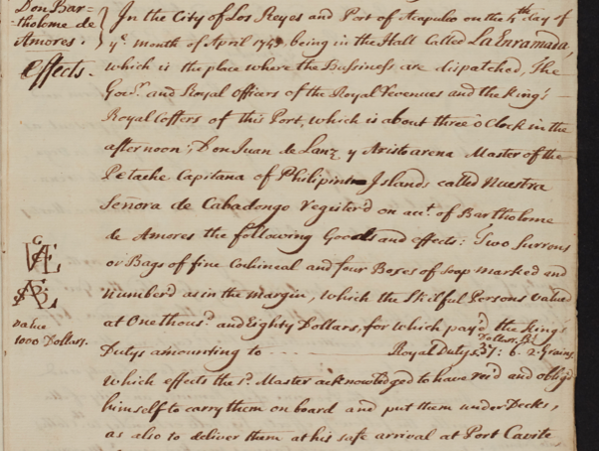 Don Bar=
tholome de
Amores.
Effects.
In the City of Los Reyes and Port of Acapulco on the 4th day of
ye. month of April 1743, being in the Hall Called La Enramada,
which is the place where the Bussiness, are dispatched, The
Gov.r and Royal Officers of the Royal Revenues and the King's
Royal Coffers of this Port, which is about three o Clock in the
afternoon; Don Juan de Lanz y Aristoarena Master of the
Petache Capitana of Philipine Islands called Nuestra
Señora de Cabadongo register'd on acct. of Bartholome
de Amores the following Goods and effects: Two Surrons
or Bags of fine Cochineal and four Boxes of soap marked and
number'd as in the margin, which the Skilful Persons valued
at One thous.d and Eighty Dollars, for which pay'd the King's
Dollars. Rs.
Dutys amounting to --- Royal Dutys 37: 6. 2 Grains
value
1000 Dollars.
Which effects the s.d Master acknowledged to have rec'd and oblig'd
himself to carry them on board and put them under Decks,
as also to deliver them at his safe arrival at Port Cavite